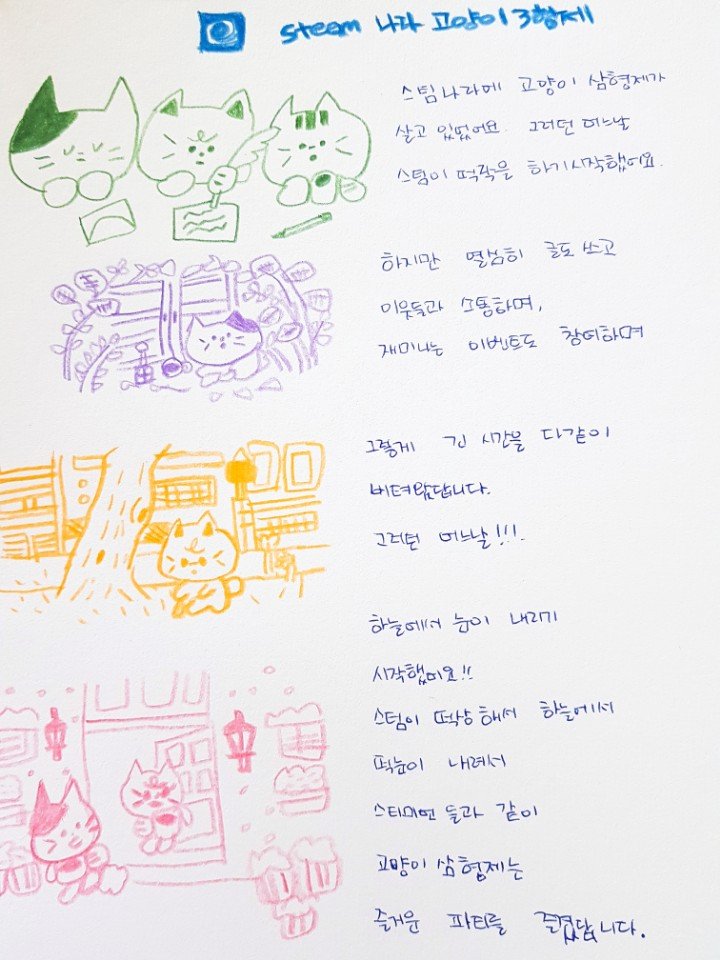 steem 나라 고양이 3형제
스팀나라에 고양이 삼형제가
살고 있었어요. 그러던 어느날
스팀이 떡락을 하기시작했어요.
하지만 열심히 글도 쓰고
이웃들과 소통하며,
재미나는 이벤트도 참여하며
그렇게 긴 시간을 다같이
버텨왔답니다.
그러던 어느날!!!.
하늘에서 눈이 내리기
시작했어요!!
스팀이 떡상해서 하늘에서
떡눈이 내려서
스티미언 들과 같이
고양이 삼형제는
즐거운 파티를 즐겼답니다.